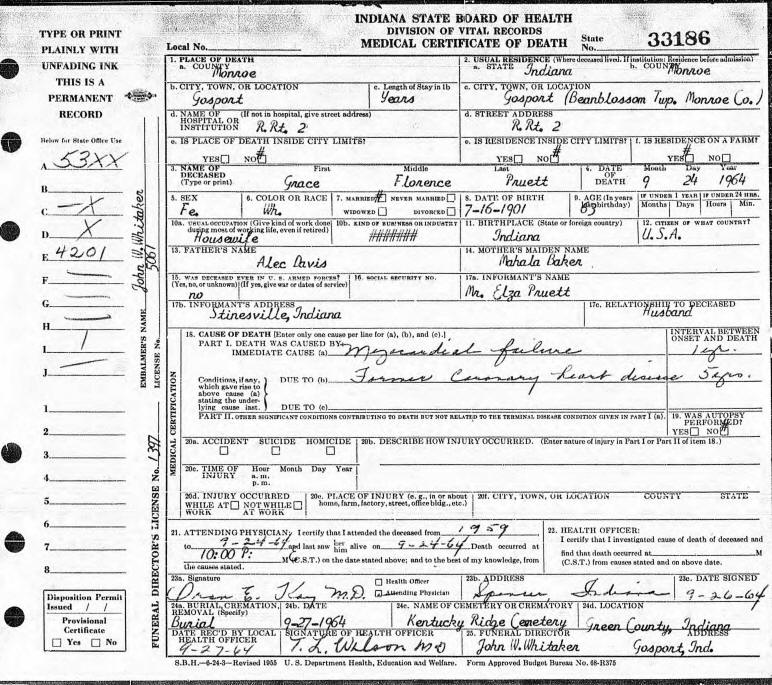 INDIANA STATE BOARD OF HEALTH
DIVISION OF VITAL RECORDS
MEDICAL CERTIFICATE OF DEATH
Local No.
State No. 33186
TYPE OR PRINT
PLAINLY WITH
UNFADING INK
THIS IS A
PERMANENT
RECORD
Below for State Office Use
A. 53XX
B.
C. -X
D. X
E. 4201
F. —
G.
H.
I. 1
J. —
1.
2.
3.
4.
5.
6.
7.
8.
Disposition Permit
Issued / /
Provisional
Certificate
Yes No
EMBALMER'S NAME John W. Whitaker LICENSE No. 5061
FUNERAL DIRECTOR'S LICENSE No. 1397
1. PLACE OF DEATH
a. COUNTY
Monroe
2. USUAL RESIDENCE (Where deceased lived. If institution: Residence before admission)
a. STATE Indiana b. COUNTY Monroe
b. CITY, TOWN, OR LOCATION
Gosport
c. Length of Stay in 1b
Years
c. CITY, TOWN, OR LOCATION
Gosport (Beanblossom Twp. Monroe Co.)
d. NAME OF (If not in hospital, give street address)
HOSPITAL OR
INSTITUTION R. Rt. 2
d. STREET ADDRESS
R. Rt. 2
e. IS PLACE OF DEATH INSIDE CITY LIMITS?
YES NO #
e. IS RESIDENCE INSIDE CITY LIMITS?
YES NO #
f. IS RESIDENCE ON A FARM?
YES # NO
3. NAME OF DECEASED
(Type or print)
First Middle Last
Grace Florence Pruett
4. DATE OF DEATH
Month Day Year
9 24 1964
5. SEX
Fe.
6. COLOR OR RACE
Wh.
7. MARRIED # NEVER MARRIED
WIDOWED DIVORCED
8. DATE OF BIRTH
7-16-1901
9. AGE (In years last birthday)
63
IF UNDER 1 YEAR
Months Days
IF UNDER 24 HRS.
Hours Min.
10a. USUAL OCCUPATION (Give kind of work done during most of working life, even if retired)
Housewife
10b. KIND OF BUSINESS OR INDUSTRY
#######
11. BIRTHPLACE (State or foreign country)
Indiana
12. CITIZEN OF WHAT COUNTRY?
U.S.A.
13. FATHER'S NAME
Alec Davis
14. MOTHER'S MAIDEN NAME
Mahala Baker
15. WAS DECEASED EVER IN U. S. ARMED FORCES?
(Yes, no, or unknown) (If yes, give war or dates of service)
no
16. SOCIAL SECURITY NO.
17a. INFORMANT'S NAME
Mr. Elza Pruett
17b. INFORMANT'S ADDRESS
Stinesville, Indiana
17c. RELATIONSHIP TO DECEASED
Husband
MEDICAL CERTIFICATION
18. CAUSE OF DEATH [Enter only one cause per line for (a), (b), and (c).]
INTERVAL BETWEEN
ONSET AND DEATH
PART I. DEATH WAS CAUSED BY:
IMMEDIATE CAUSE (a) Myocardial failure 1 yr.
Conditions, if any, which gave rise to above cause (a) stating the underlying cause last.
DUE TO (b) Former Coronary heart disease 5 yrs.
DUE TO (c)
PART II. OTHER SIGNIFICANT CONDITIONS CONTRIBUTING TO DEATH BUT NOT RELATED TO THE TERMINAL DISEASE CONDITION GIVEN IN PART I (a).
19. WAS AUTOPSY PERFORMED?
YES NO #
20a. ACCIDENT SUICIDE HOMICIDE
20b. DESCRIBE HOW INJURY OCCURRED. (Enter nature of injury in Part I or Part II of item 18.)
20c. TIME OF INJURY
Hour Month Day Year
a. m.
p. m.
20d. INJURY OCCURRED
WHILE AT WORK NOT WHILE AT WORK
20e. PLACE OF INJURY (e. g., in or about home, farm, factory, street, office bldg., etc.)
20f. CITY, TOWN, OR LOCATION COUNTY STATE
21. ATTENDING PHYSICIAN: I certify that I attended the deceased from 1959
to 9-24-64 and last saw her him alive on 9-24-64. Death occurred at
10:00 P. M (C.S.T.) on the date stated above; and to the best of my knowledge, from
the causes stated.
22. HEALTH OFFICER:
I certify that I investigated cause of death of deceased and
find that death occurred at M
(C.S.T.) from causes stated and on above date.
23a. Signature
Oran E. Kay M.D.
Health Officer
Attending Physician
23b. ADDRESS
Spencer, Indiana
23c. DATE SIGNED
9-26-64
24a. BURIAL, CREMATION, REMOVAL (Specify)
Burial
24b. DATE
9-27-1964
24c. NAME OF CEMETERY OR CREMATORY
Kentucky Ridge Cemetery
24d. LOCATION
Green County, Indiana
DATE REC'D BY LOCAL HEALTH OFFICER
9-27-64
SIGNATURE OF HEALTH OFFICER
T. L. Wilson MD
25. FUNERAL DIRECTOR ADDRESS
John W. Whitaker Gosport, Ind.
S.B.H.—6-24-3—Revised 1955 U. S. Department Health, Education and Welfare. Form Approved Budget Bureau No. 68-R375